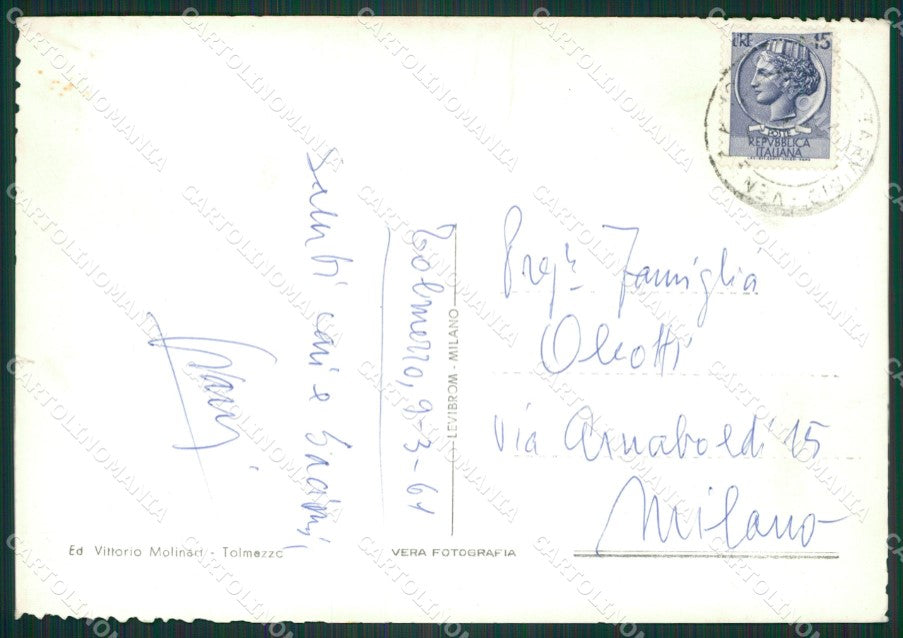 LIRE 15
POSTE
REPVBBLICA
ITALIANA
TARVISIO - VEN
Saluti cari e
Tolmezzo, 9-3-61
Preg. Famiglia
Via Arnaboldi 15
Milano
LEVIBROM - MILANO
Ed Vittorio Molinari - Tolmezzo
VERA FOTOGRAFIA
CARTOLINOMANIA